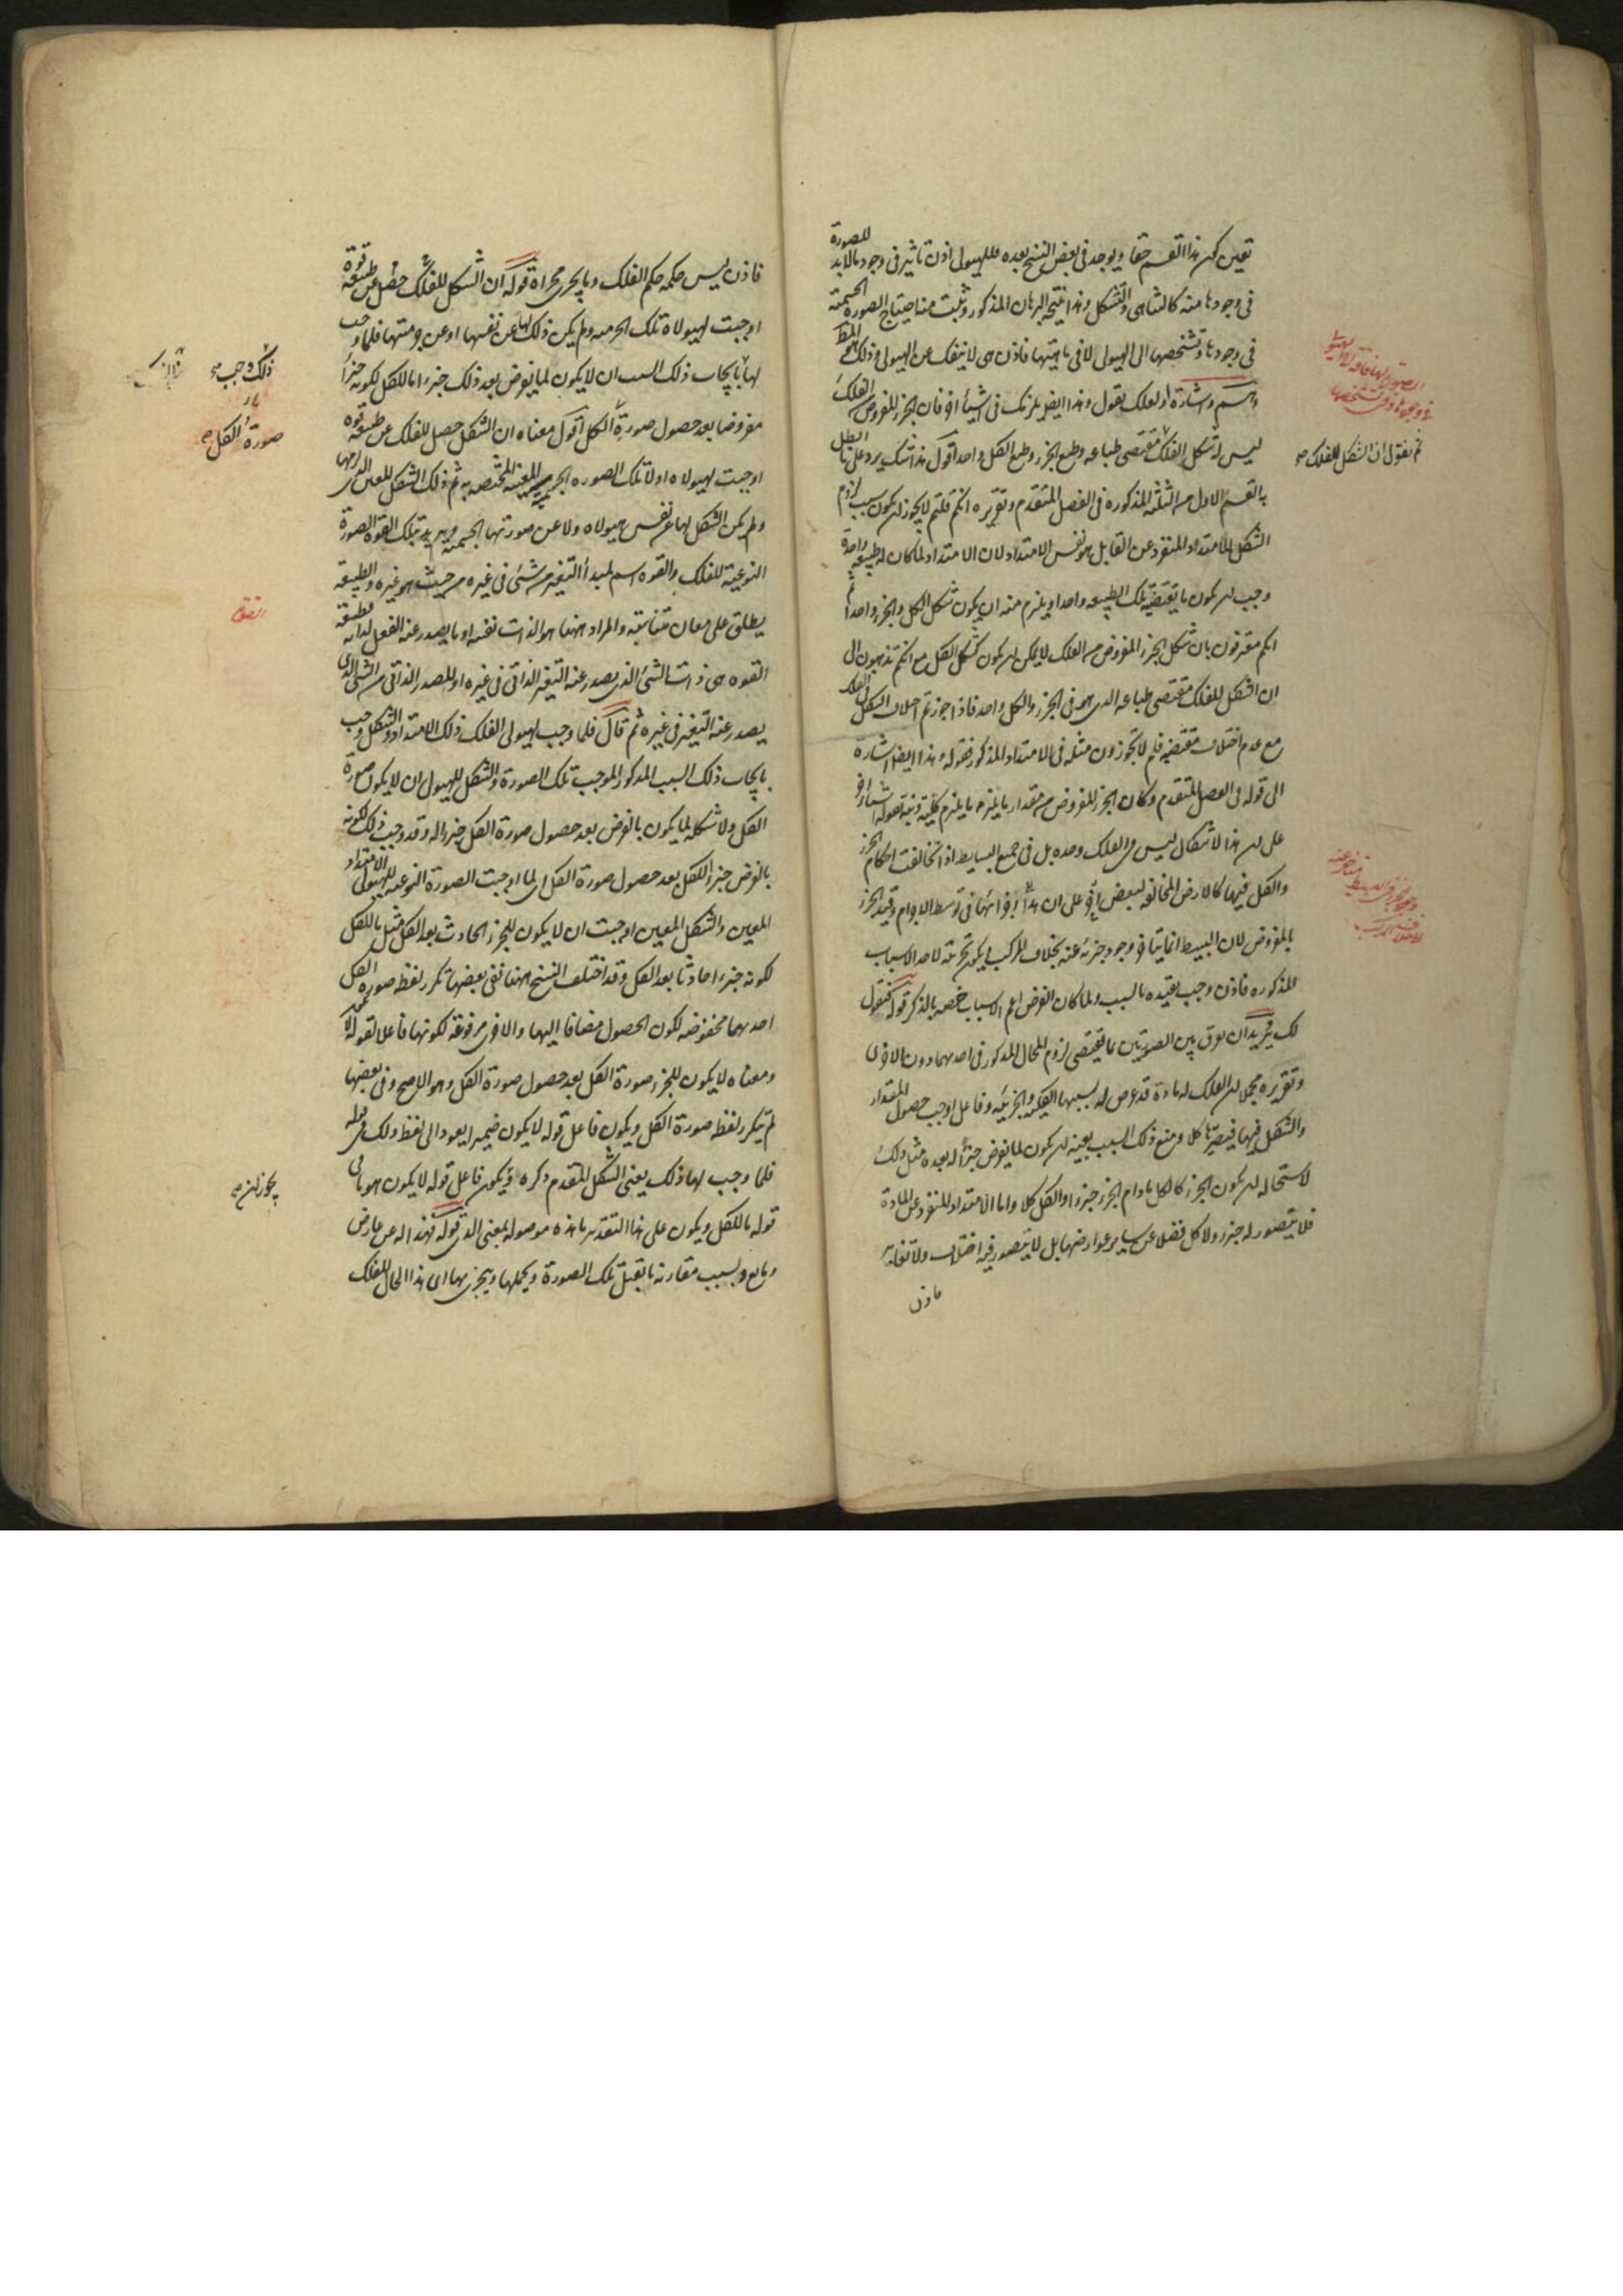 تعين كون هذا القسم حقا ويوجد فى بعض النسخ بعده فللهيولى اذن تاثير فى وجود ما لابد للصورة
فى وجودها منه كالتناهى والتشكل وهذا نتيجة البرهان المذكور وثبت منه احتياج الصورة الجسمية
فى وجودها وتشخصها الى الهيولى لا فى ماهيتها فاذن هى لا تنفك عن الهيولى وذلك هو المط
وهم واشارة او لعلك تقول وهذا ايضا يلزمك فى اشياء اخر فان الجزء المفروض من الفلك
ليس له شكل الفلك مقتضى طباعه وطبع الجزء وطبع الكل واحد اقول هذا شك يرد على ما ابطل
به القسم الاول من الثلثة المذكورة فى الفصل المتقدم وتقريره انكم قلتم لا يجوز ان يكون سبب لزوم
الشكل للامتداد المنفرد عن القابل هو نفس الامتداد لان الامتداد لما كان له طبيعة واحدة
وجب ان يكون ما تقتضيه تلك الطبيعة واحدا ويلزم منه ان يكون شكل الكل والجزء واحدا ثم
انكم معترفون بان شكل الجزء المفروض من الفلك لا يمكن ان يكون كشكل الكل مع انكم تذهبون الى
ان الشكل للفلك مقتضى طباعه الذى هو فى الجزء والكل واحد فاذا جوزتم اختلاف الشكل فى الفلك
مع عدم اختلاف مقتضيه فلم لا تجوزون مثله فى الامتداد المذكور فقوله وهذا ايضا اشارة
الى قوله فى الفصل المتقدم وكان الجزء المفروض من مقدار ما يلزمه ما يلزم كليته ونبه بقوله اشياء اخر
على ان هذا الاشكال ليس فى الفلك وحده بل فى جميع البسايط اذا تخالفت احكام الجزء
والكل فيها كالارض المخالفة لبعض اجزائها فى توسط الاجرام وقيد الجزء
بالمفروض لان البسيط انما يتاخر وجود جزئه عنه بخلاف المركب
المذكورة فاذن وجب تقييده بالسبب ولما كان الفرض اعم الاسباب خصه بالذكر قوله فنقول
لك يريد ان يفرق بين الصورتين بما يقتضى لزوم المحال المذكور فى احديهما دون الاخرى
وتقريره مجملا ان الفلك له مادة قد عرض له بسببها الكلية والجزئية وفاعل اوجب حصول المقدار
والشكل فيها فيصيرها كلا ومنع ذلك السبب بعينه ان يكون لما يفرض جزأ له بعده مثل ذلك
لاستحالة ان يكون الجزء كالكل ما دام الجزء جزءا والكل كلا واما الامتداد المنفرد عن المادة
فلا يتصور له جزء ولا كل فضلا عن ساير عوارضها بل لا يتصور فيه اختلاف ولا تغاير
فاذن
ثم نقول ان الشكل للفلك صح
فاذن ليس حكمه حكم الفلك وما يجرى مجراه قوله ان الشكل للفلك حصل عن طبيعة قوة
اوجبت لهيولاه تلك الجرمية ولم يكن ذلك لها عن نفسها او عن جرميتها فلما وجب
لها بايجاب ذلك السبب ان لا يكون لما يفرض بعد ذلك جزءا ما للكل لكونه جزأ
مفروضا بعد حصول صورة الكل اقول معناه ان الشكل حصل للفلك عن طبيعة قوة
اوجبت لهيولاه اولا تلك الصورة الجرمية المعينة المختصة به ثم ذلك الشكل المعين
ولم يكن الشكل لها عن نفس هيولاه ولا عن صورتها الجسمية ويريد بتلك القوة الصورة
النوعية للفلك والقوة اسم لمبدأ التغير من شئ فى غيره من حيث هو غيره والطبيعة
يطلق على معان متناسبة والمراد ههنا هو الذات نفسه او ما يصدر عنه الفعل لذاته فطبيعة
القوة هى ذات الشئ الذى يصدر عنه التغير الذاتى فى غيره او المصدر الذاتى من الشئ الذى
يصدر عنه التغير فى غيره ثم قال فلما وجب لهيولى الفلك ذلك الامتداد والشكل وجب
بايجاب ذلك السبب المذكور الموجب تلك الصورة والشكل للهيولى ان لا يكون صورة
الكل ولا شكله لما يكون بالفرض بعد حصول صورة الكل جزءا له وقد وجب ذلك لكونه
بالفرض جزء الكل بعد حصول صورة الكل اى لما اوجبت الصورة النوعية للهيولى الامتداد
المعين والشكل المعين اوجبت ان لا يكون للجزء الحادث بعد الكل مثل ما للكل
لكونه جزءا حادثا بعد الكل وقد اختلف النسخ ههنا ففى بعضها تكرر لفظ صورة الكل
احديهما مخفوضة لكون الحصول مضافا اليها والاخرى مرفوعة لكونها فاعلا لقوله لا يكون
ومعناه لا يكون للجزء صورة الكل بعد حصول صورة الكل وهو الاصح وفى بعضها
لم يتكرر لفظه صورة الكل ويكون فاعل قوله لا يكون ضميرا يعود الى لفظ ذلك فى قوله
فلما وجب لها ذلك يعنى الشكل المتقدم ذكره ويكون فاعل قوله لا يكون هو ما فى
قوله ما للكل ويكون على هذا التقدير ما هذه موصولة بمعنى الذى قوله فهذا له عن عارض
ومانع وبسبب مقارنة ما تقبل تلك الصورة ويحملها ويتجزى بها اى هذا الحال للفلك
ذلك وجب صح
صورة الكل صح
يجوز ان صح